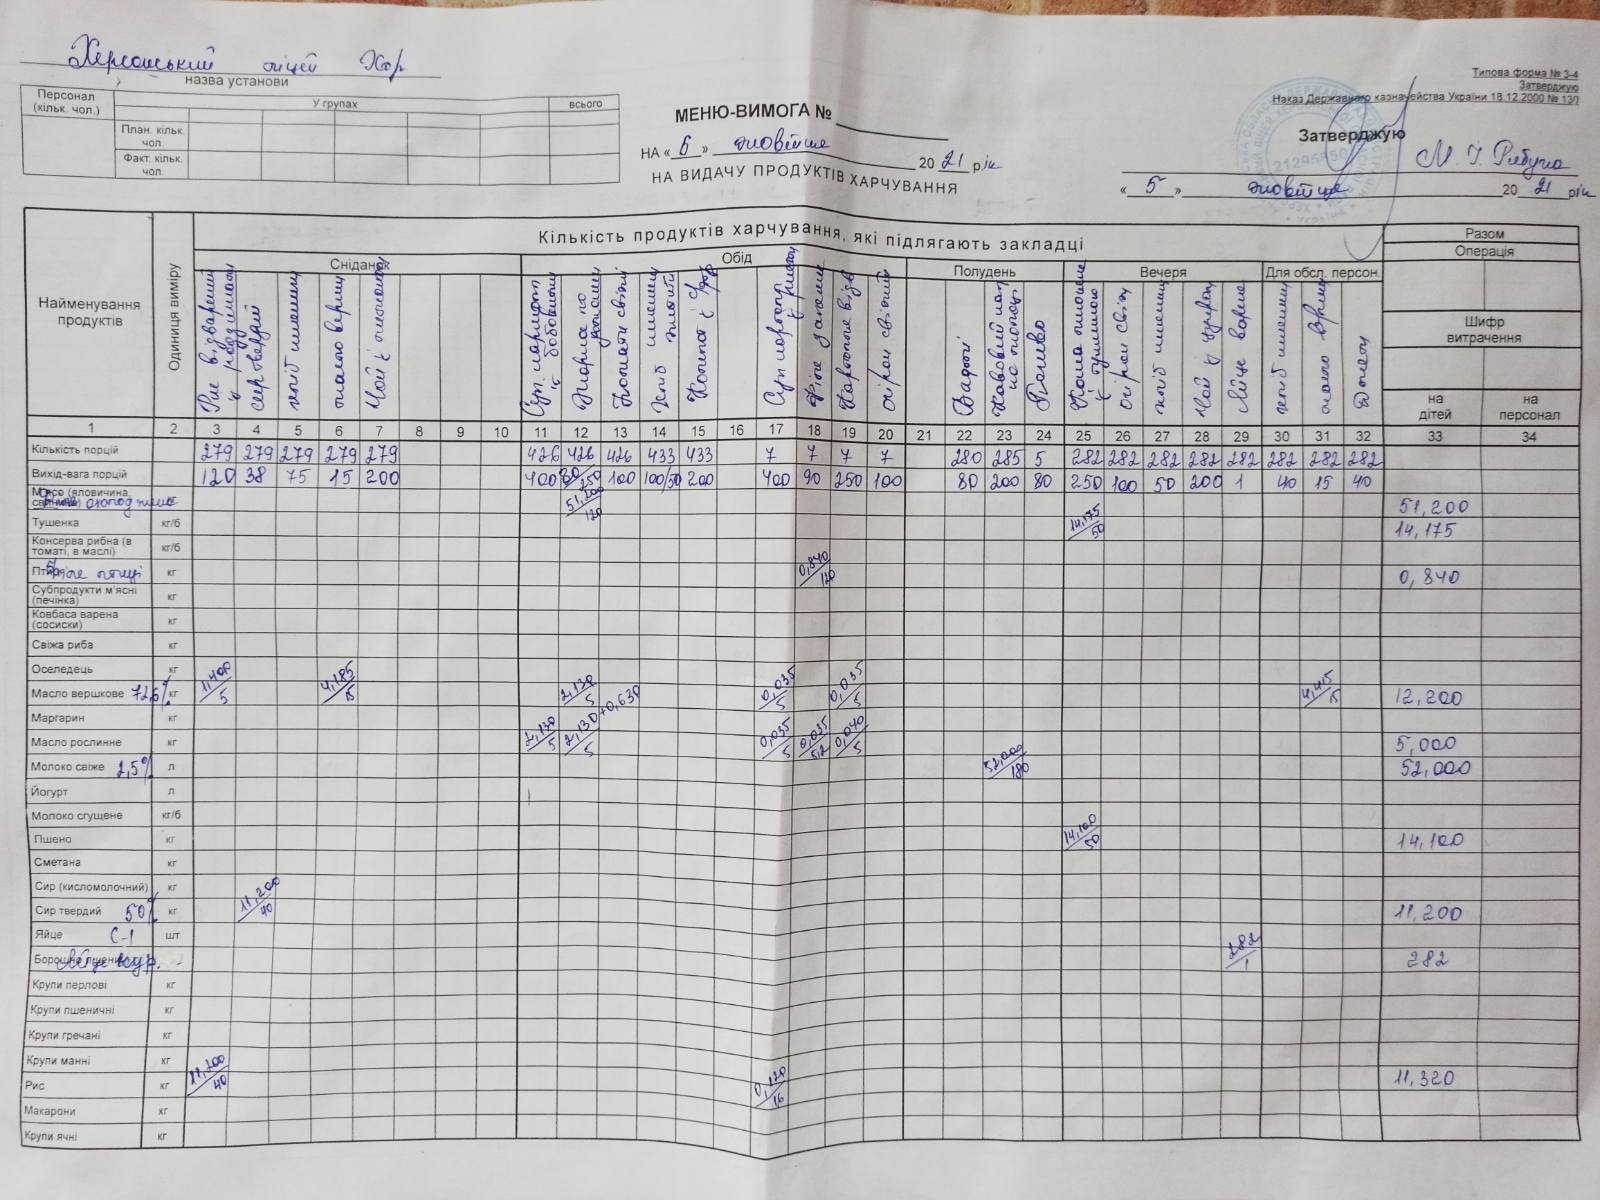 Херсонський ліцей Хор
назва установи
Типова форма № 3-4
Затверджую
Наказ Державного казначейства України 18.12.2000 № 130
Персонал (кільк. чол.)
У групах
всього
План. кільк. чол.
Факт. кільк. чол.
МЕНЮ-ВИМОГА №
НА « 6 » жовтня 20 21 рік
НА ВИДАЧУ ПРОДУКТІВ ХАРЧУВАННЯ
Затверджую
« 5 » 20 21 рік
21295850
Найменування продуктів
Одиниця виміру
Кількість продуктів харчування, які підлягають закладці
Разом
Операція
Сніданок
Обід
Полудень
Вечеря
Для обсл. персон.
Шифр витрачення
на дітей
на персонал
Рис відварений з родзинками
сир твердий
хліб пшеничн
масло верш
Чай з лимоном
Суп картоп з бобовими
Капуста свіжа
Хліб
Компот з
Суп картопл з рисом
Філе запечене
Картопля відв
огірок свіжий
Вафлі
Кавовий нап на молоці
Печиво
Каша пшоняна з тушонкою
огірок свіж
хліб пшенич
Чай з цукром
Яйце варене
хліб пшенич
масло верш
1 2 3 4 5 6 7 8 9 10 11 12 13 14 15 16 17 18 19 20 21 22 23 24 25 26 27 28 29 30 31 32 33 34
Кількість порцій 279 279 279 279 279 426 426 426 433 433 7 7 7 7 280 285 5 282 282 282 282 282 282 282 282
Вихід-вага порцій 120 38 75 15 200 400 80/250 100 100/50 200 400 90 250 100 80 200 80 250 100 50 200 1 40 15 40
М'ясо (яловичина, свинина) кг 51,200/120 51,200
Тушенка кг/б 14,175/50 14,175
Консерва рибна (в томаті, в маслі) кг/б
Птиця філе птиці кг 0,840/120 0,840
Субпродукти м'ясні (печінка) кг
Ковбаса варена (сосиски) кг
Свіжа риба кг
Оселедець кг
Масло вершкове 72,6% кг 1,400/5 4,185/15 2,130/5 0,035/5 0,035/5 4,415/15 12,200
Маргарин кг
Масло рослинне кг 2,130/5 2,130/5 +0,630 0,035/5 0,035/5,2 0,040/5 5,000
Молоко свіже 2,5% л 52,000/180 52,000
Йогурт л
Молоко сгущене кг/б
Пшено кг 14,100/50 14,100
Сметана кг
Сир (кисломолочний) кг
Сир твердий 50% кг 11,200/40 11,200
Яйце С-1 шт
Борошно пшеничне Яйце кур. 282/1 282
Крупи перлові кг
Крупи пшеничні кг
Крупи гречані кг
Крупи манні кг
Рис кг 11,200/40 0,120/16 11,320
Макарони кг
Крупи ячні кг